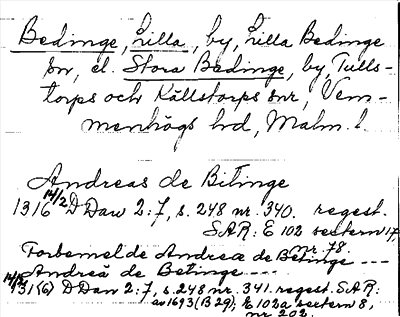 Bedinge, Lilla, by, Lilla Bedinge
sn, el. Stora Bedinge, by, Tulls-
torps och Källstorps snr, Vem-
menhögs hd, Malm. l.
Andreas de Bitinge
1316 14/2 D Dan 2:7, s. 248 nr. 340. regest.
SAR: E 102 sectern 17,
nr. 78.
Forbemelde Andrea de Betinge ---
Andreä de Betinge ---
131(6) D Dan 2:7, s. 248 nr. 341. regest. SAR:
av 1693 (B 29); E 102a sectern 8,
nr 202.